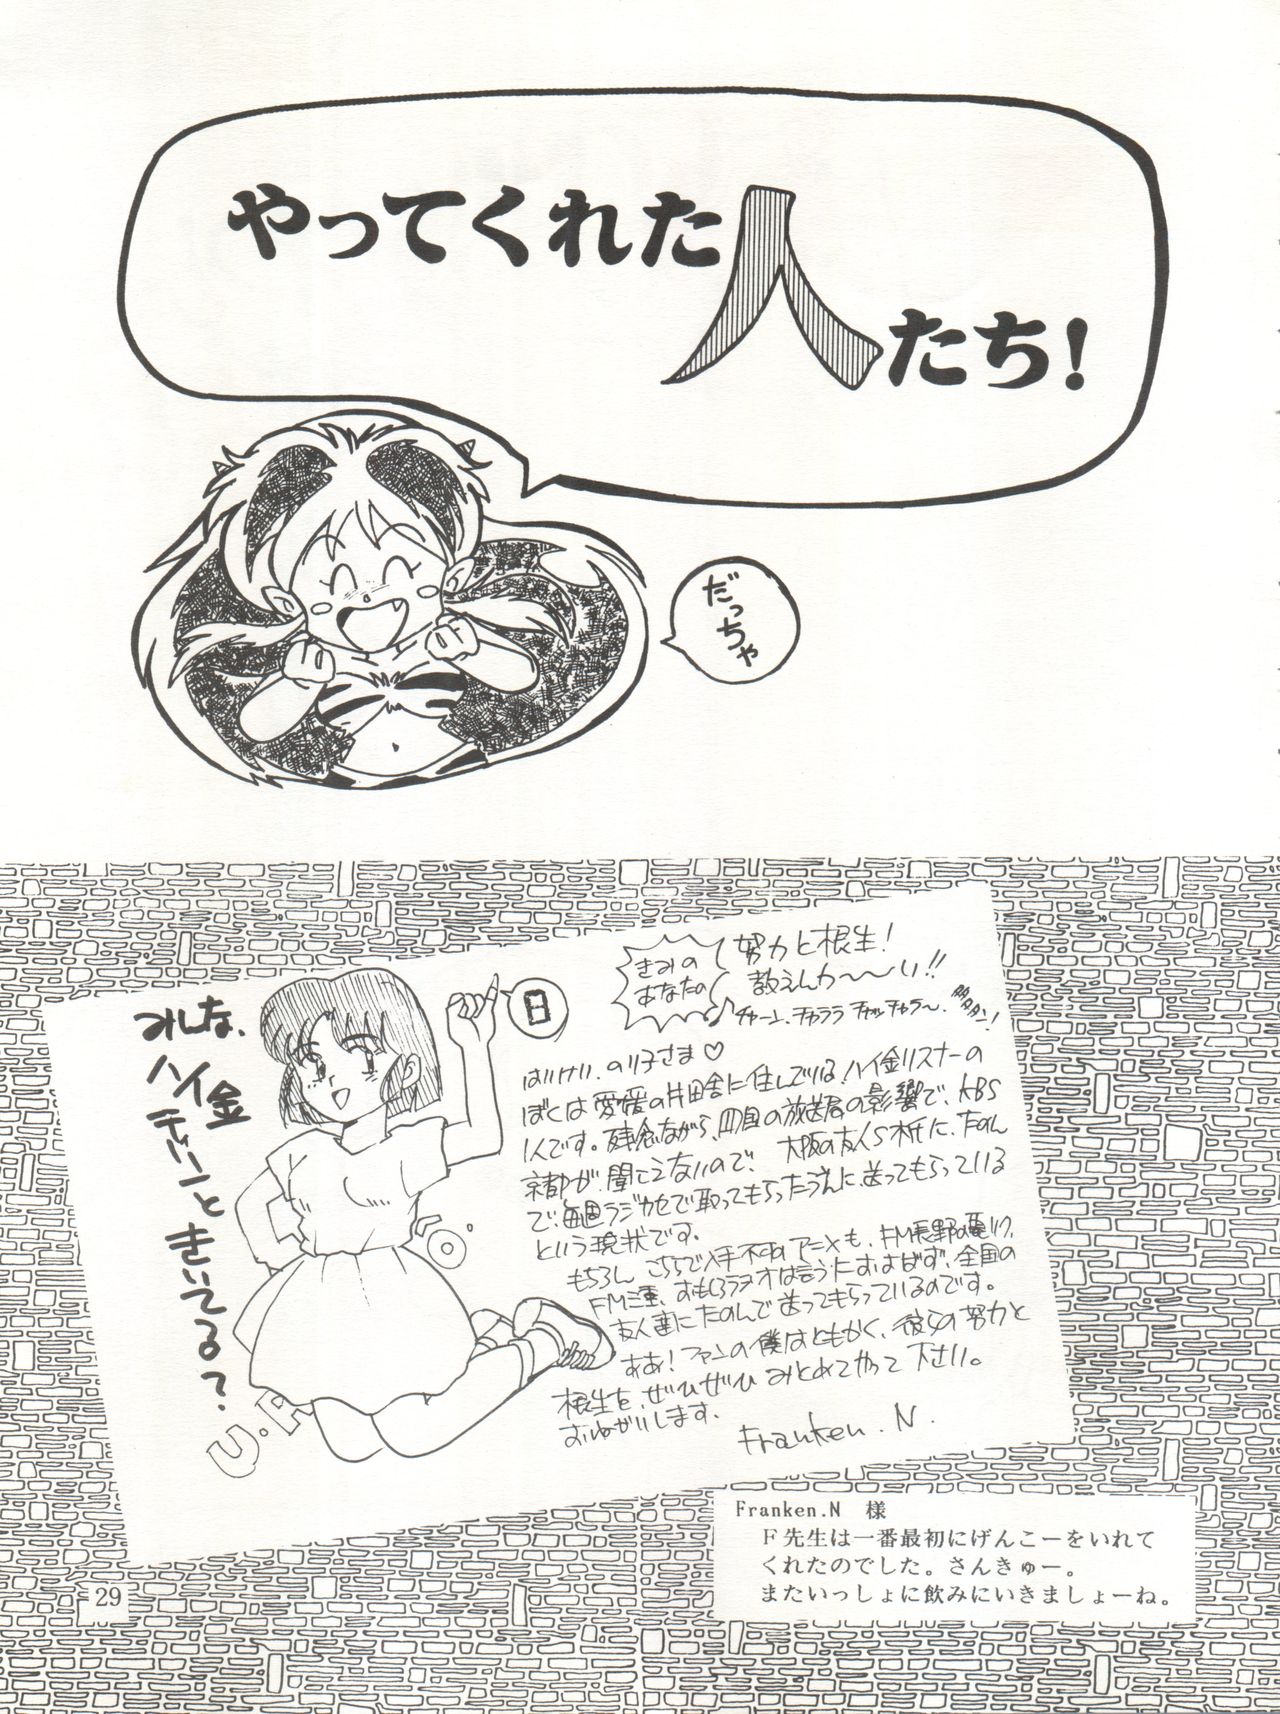 やってくれた人たち!
だっちゃ
みんな、
ハイ金
ちゃーんと
きいてる?
日
U.F
きみの
あなたの
努力と根性!
教えんか〜〜い!!
チャーン、チャララ チャッチャラ〜、
はいけい、のり子さま♡
ぼくは愛媛の片田舎に住んでいる、ハイ金リスナーの
1人です。残念ながら、四国の放送局の影響で、KBS
京都が聞こえないので、大阪の友人S木氏に、たのん
で、毎週ラジカセで取ってもらったうえに、送ってもらっている
という現状です。
もちろん、こちらで入手不可のアニメも、FM長野の
FM三重、すもらジオは言うにおよばず、全国の
友人達にたのんで送ってもらっているのです。
ああ!ファンの僕はともかく、彼らの努力と
根性を、ぜひぜひみとめてやって下さい。
おねがいします。
Franken.N.
Franken.N 様
F先生は一番最初にげんこーをいれて
くれたのでした。さんきゅー。
またいっしょに飲みにいきましょーね。
29